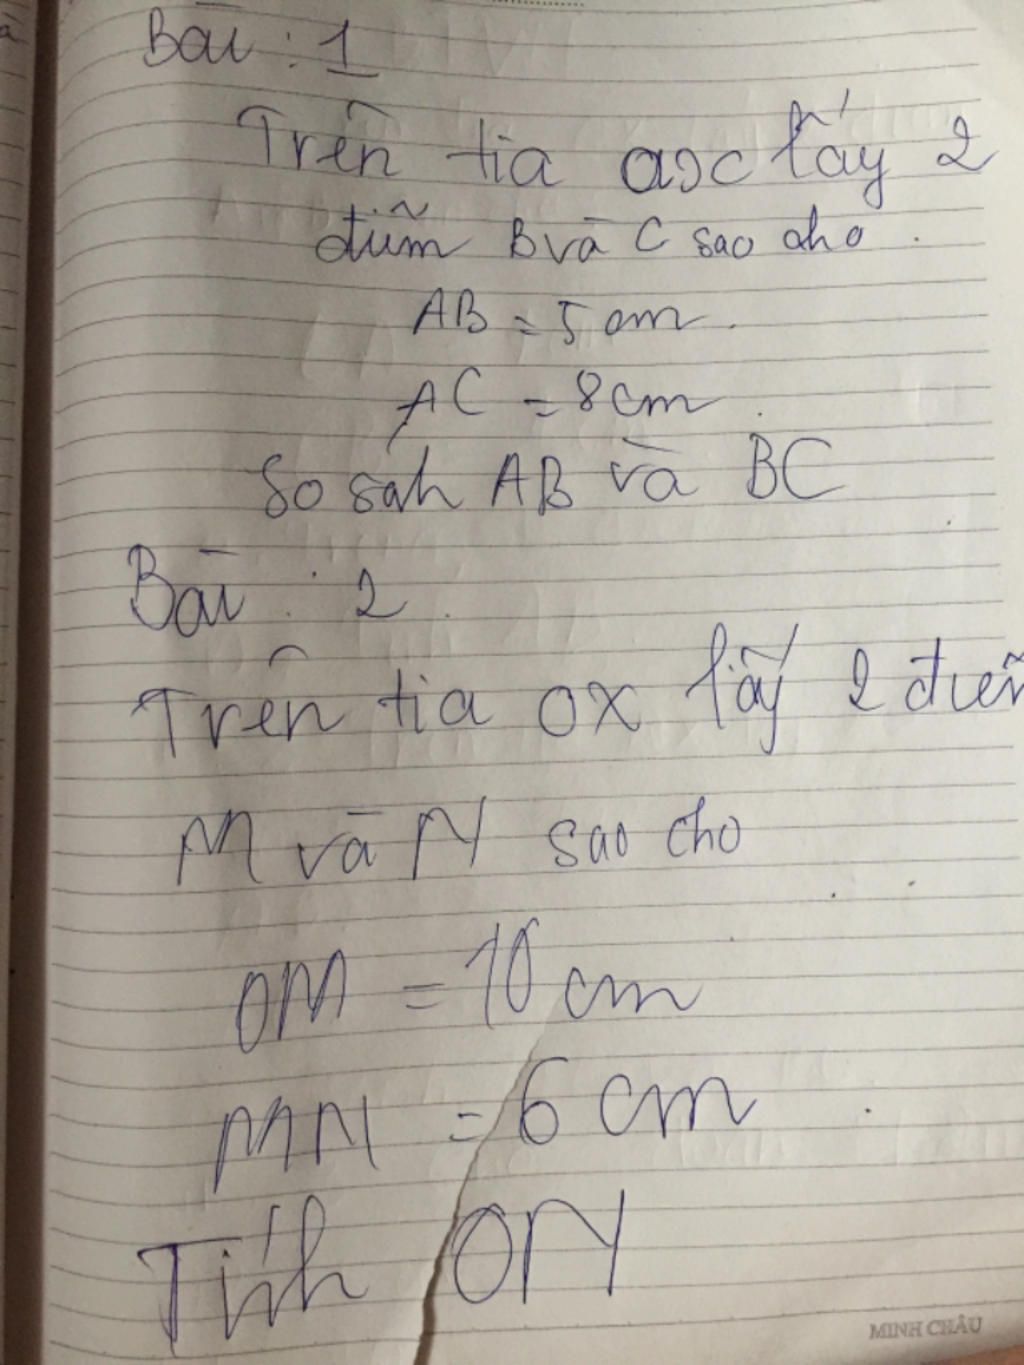 Bài : 1
Trên tia ax lấy 2
điểm B và C sao cho
AB = 5 cm.
AC = 8 cm.
So sáh AB và BC
Bài : 2.
Trên tia ox lấy 2 điểm
M và N sao cho
OM = 10 cm
MN = 6 cm
Tính ON
MINH CHÂU